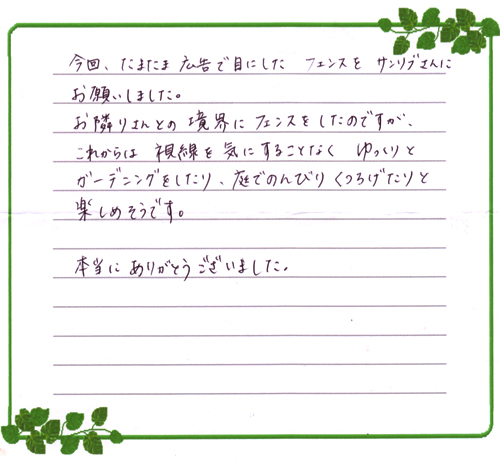 今回、たまたま 広告で目にした フェンスを サンリブさんに
お願いしました。
お隣りさんとの 境界に フェンスを したのですが、
これからは 視線を 気にすることなく ゆっくりと
ガーデニングをしたり、庭でのんびり くつろげたりと
楽しめそうです。
本当に ありがとうございました。